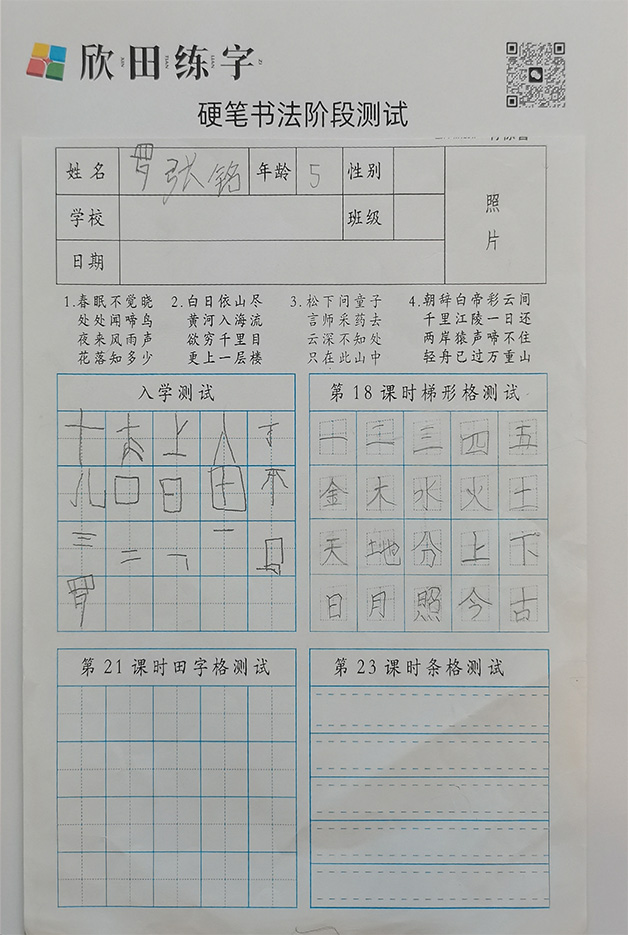 欣田练字
XIN TIAN LIAN ZI
硬笔书法阶段测试
姓名 罗张铭 年龄 5 性别
照片
学校 班级
日期
1.春眠不觉晓
处处闻啼鸟
夜来风雨声
花落知多少
2.白日依山尽
黄河入海流
欲穷千里目
更上一层楼
3.松下问童子
言师采药去
云深不知处
只在此山中
4.朝辞白帝彩云间
千里江陵一日还
两岸猿声啼不住
轻舟已过万重山
入学测试
十 木 上 人
儿 口 日 田
三 二 一
罗
第18课时梯形格测试
一 二 三 四 五
金 木 水 火 土
天 地 分 上 下
日 月 照 今 古
第21课时田字格测试
第23课时条格测试